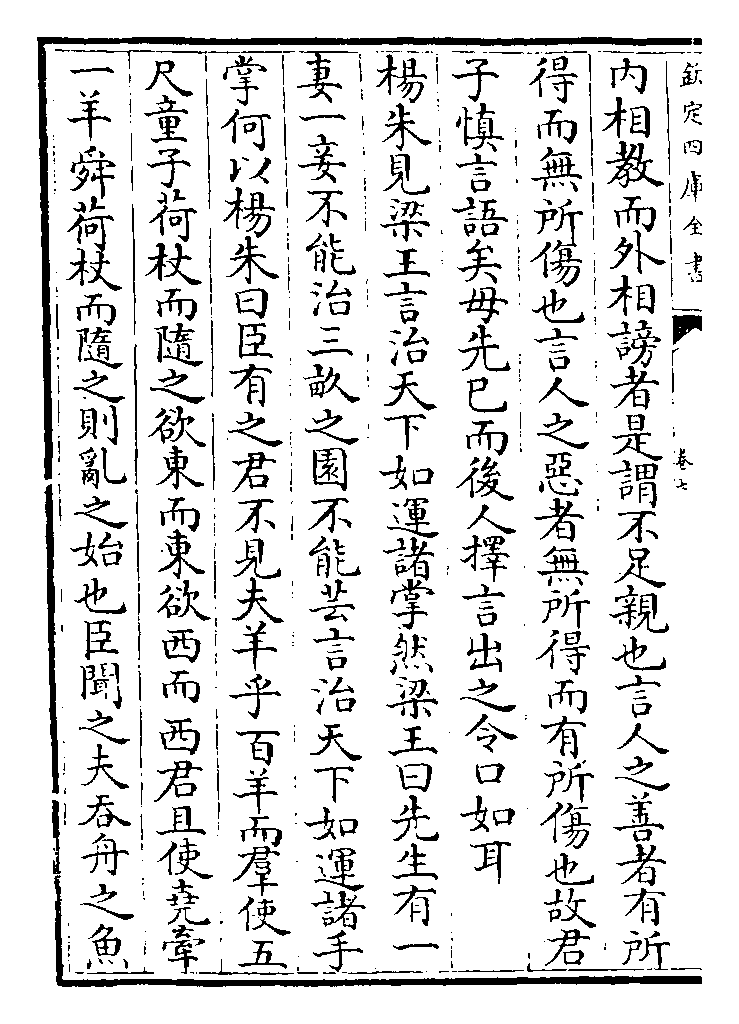 欽定四庫全書
卷七
内相教而外相謗者是謂不足親也言人之善者有所
得而無所傷也言人之惡者無所得而有所傷也故君
子慎言語矣毋先已而後人擇言出之令口如耳
楊朱見梁王言治天下如運諸掌然梁王曰先生有一
妻一妾不能治三畝之園不能芸言治天下如運諸手
掌何以楊朱曰臣有之君不見夫羊乎百羊而羣使五
尺童子荷杖而隨之欲東而東欲西而西君且使堯牽
一羊舜荷杖而隨之則亂之始也臣聞之夫吞舟之魚